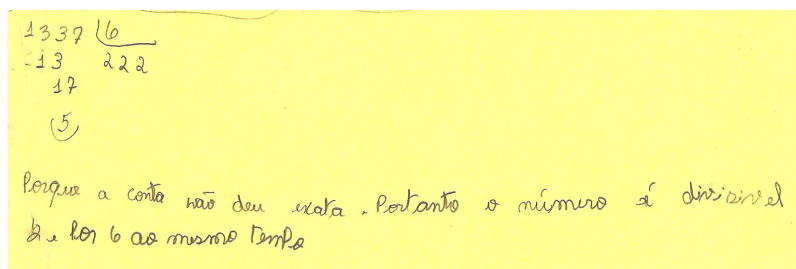 1337 6
-13 222
17
5
Porque a conta não deu exata. Portanto o número é divisivel
2 e por 6 ao mesmo tempo